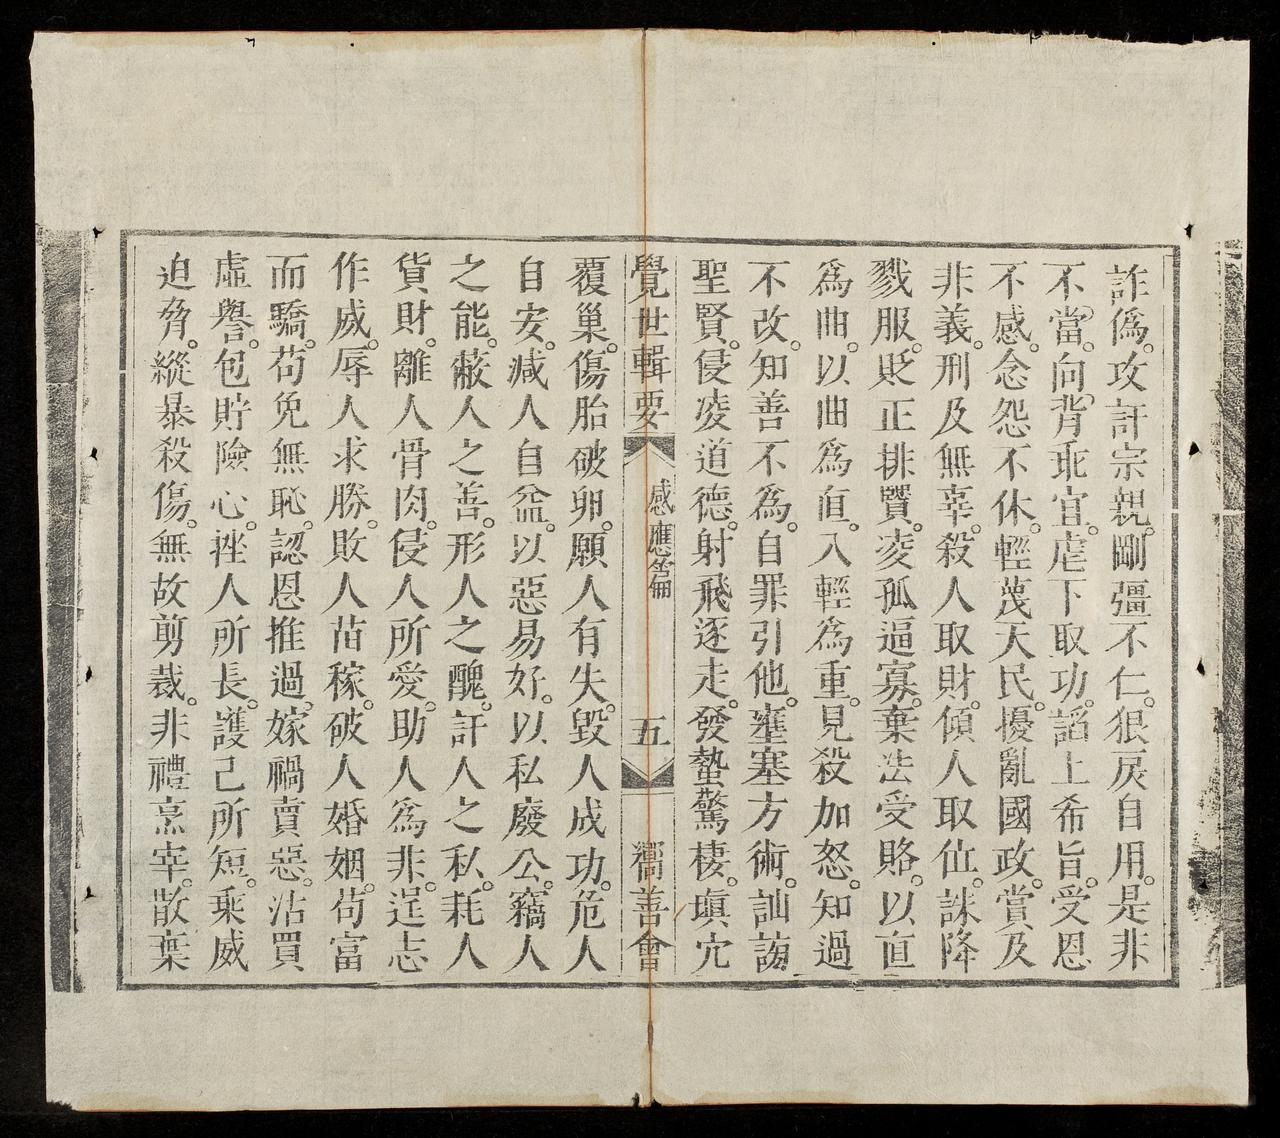 詐偽。攻訐宗親。剛彊不仁。狠戾自用。是非
不當。向背乖宜。虐下取功。諂上希旨。受恩
不感。念怨不休。輕蔑天民。擾亂國政。賞及
非義。刑及無辜。殺人取財。傾人取位。誅降
戮服。貶正排賢。凌孤逼寡。棄法受賂。以直
爲曲。以曲爲直。入輕爲重。見殺加怒。知過
不改。知善不爲。自罪引他。壅塞方術。訕謗
聖賢。侵凌道德。射飛逐走。發蟄驚棲。塡穴
覺世輯要 感應篇 五 嚮善會
覆巢。傷胎破卵。願人有失。毀人成功。危人
自安。減人自益。以惡易好。以私廢公。竊人
之能。蔽人之善。形人之醜。訐人之私。耗人
貨財。離人骨肉。侵人所愛。助人爲非。逞志
作威。辱人求勝。敗人苗稼。破人婚姻。苟富
而驕。苟免無恥。認恩推過。嫁禍賣惡。沽買
虛譽。包貯險心。挫人所長。護己所短。乘威
迫脅。縱暴殺傷。無故剪裁。非禮烹宰。散棄